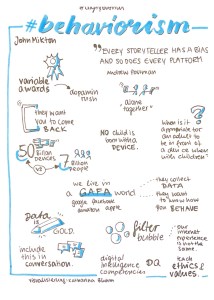 #behaviorism
John Mikton
"EVERY STORYTELLER HAS A BIAS
AND SO DOES EVERY PLATFORM
Andrew Postman
variable
awards
dopamin
rush
"alone
together"
they want
you to come
BACK
NO child is
born with a
DEVICE.
When is it
appropriate for
an adult to be
in front of
with children?
50 Billion
Devices
VS
7 Billion
People
we live in
a GAFA world
google facebook
amazon apple
they collect
DATA
they want
to know how
you BEHAVE
Data
is
GOLD.
filter
bubble
our
internet
experience
is not the
same.
include
this in
conversation.
digital
intelligence
competencies
DQ
teach
ethics &
values.